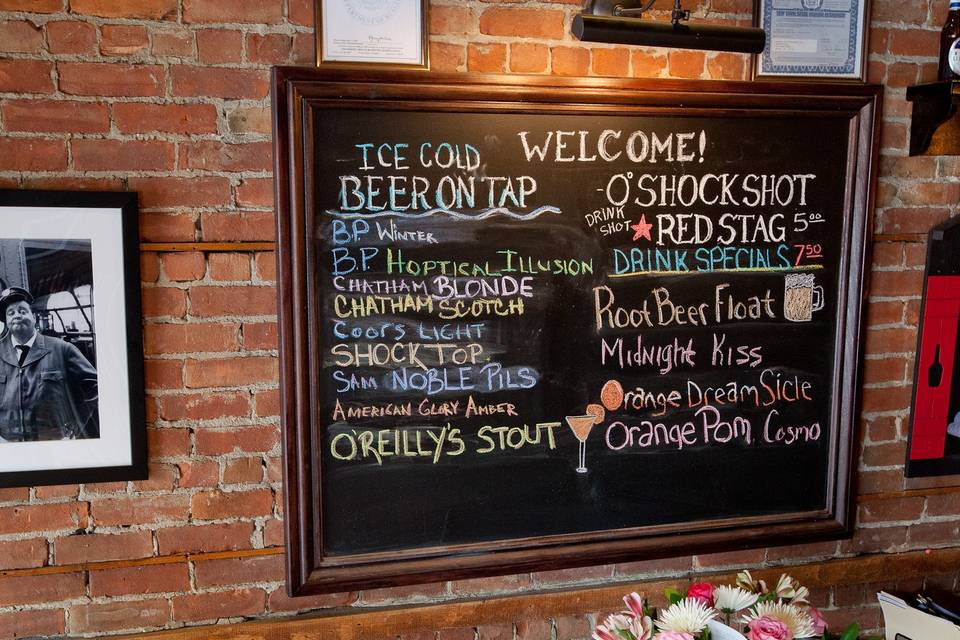 WELCOME!
ICE COLD
BEER ON TAP
B.P. WINTER
B.P. HOPTICAL ILLUSION
CHATHAM BLONDE
CHATHAM SCOTCH
COORS LIGHT
SHOCK TOP
SAM NOBLE PILS
AMERICAN GLORY AMBER
O'REILLY'S STOUT
-O'SHOCKSHOT
DRINK
SHOT
RED STAG 5.00
DRINK SPECIALS 7.50
Root Beer Float
Midnight Kiss
Orange DreamSicle
Orange Pom Cosmo